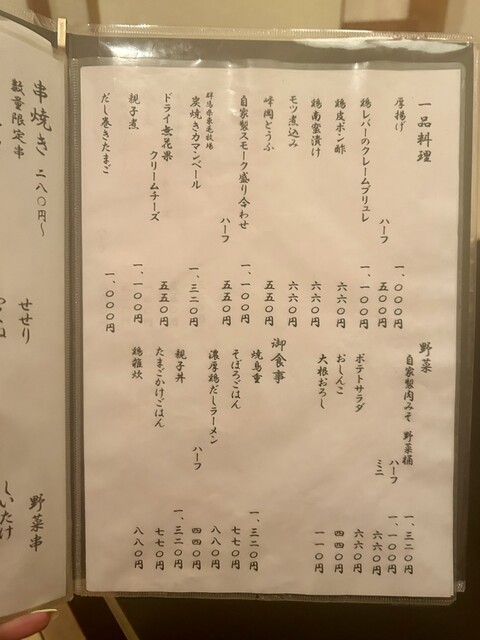 一品料理
厚揚げ 一、〇〇〇円
ハーフ 五〇〇円
鶏レバーのクレームブリュレ 一、一〇〇円
鶏皮ポン酢 六六〇円
鶏南蛮漬け 六六〇円
モツ煮込み 六六〇円
峰岡とうふ 五五〇円
自家製スモーク盛り合わせ 一、一〇〇円
ハーフ 五五〇円
群馬県東毛牧場
炭焼きカマンベール 一、三二〇円
ドライ無花果
クリームチーズ 五五〇円
親子煮 一、一〇〇円
だし巻きたまご 一、〇〇〇円
野菜
自家製肉みそ 野菜桶 一、三二〇円
ハーフ 一、一〇〇円
ミニ 六六〇円
ポテトサラダ 六六〇円
おしんこ 四四〇円
大根おろし 一一〇円
御食事
焼鳥重 一、三二〇円
そぼろごはん 七七〇円
濃厚鶏だしラーメン 八八〇円
ハーフ 四四〇円
親子丼 一、三二〇円
たまごかけごはん 七七〇円
鶏雑炊 八八〇円
串焼き 二八〇円〜
数量限定串
せせり
野菜串
しいたけ